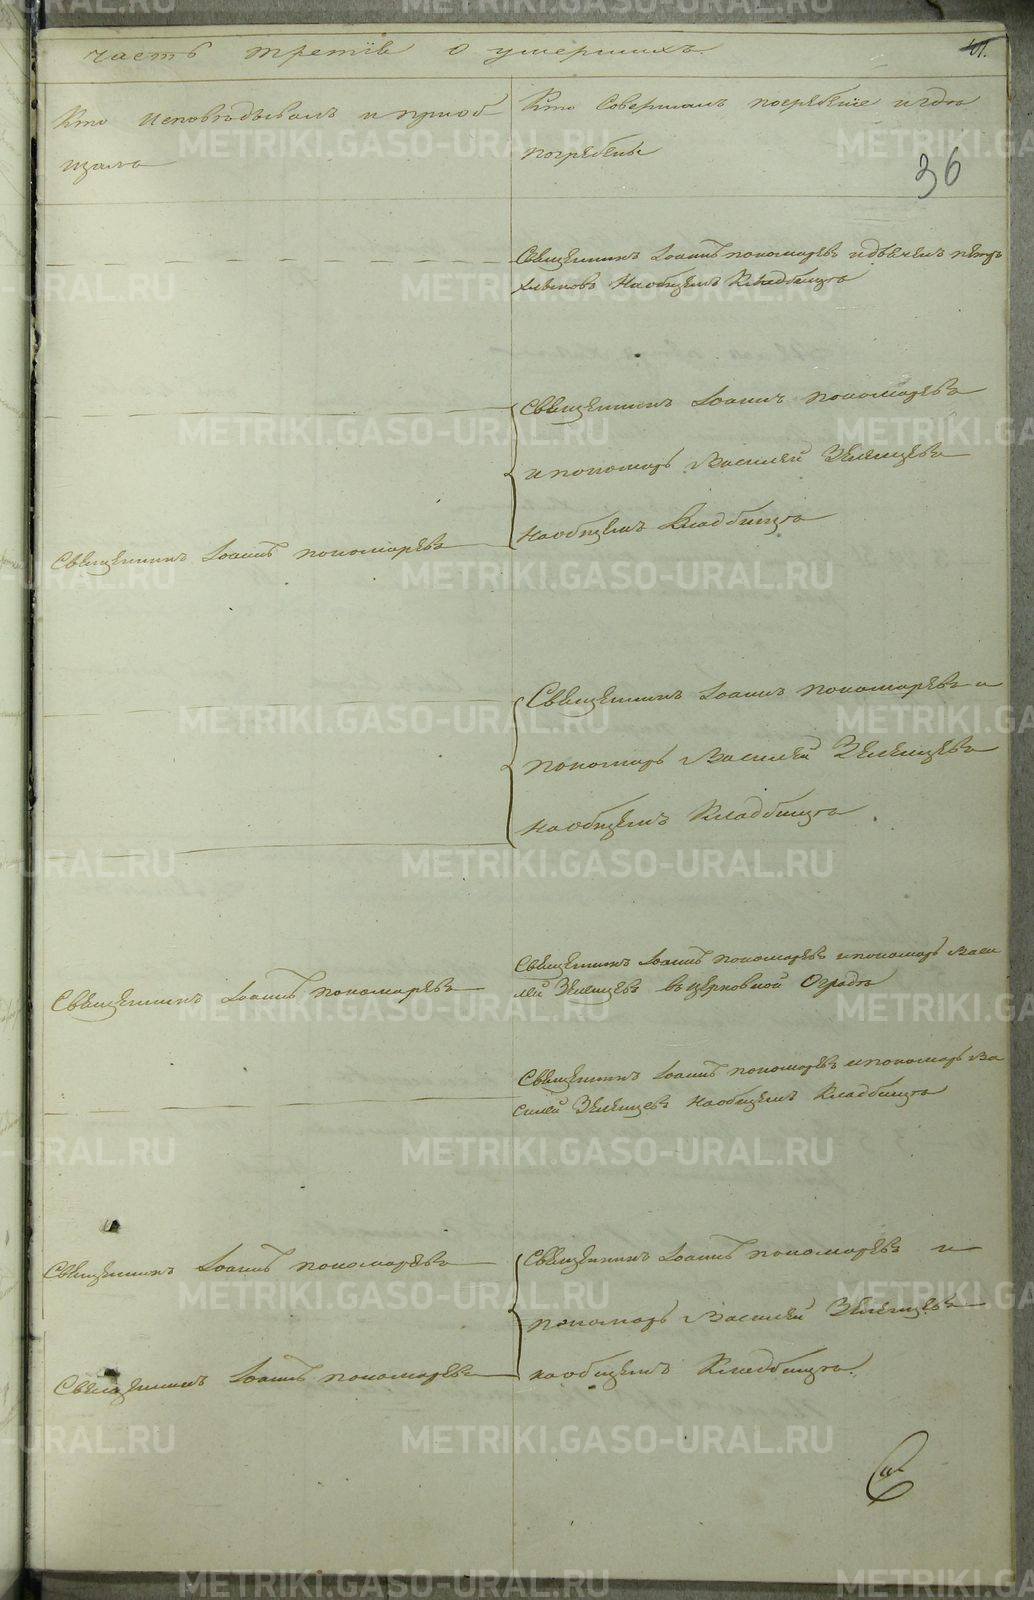 часть третїя о умершихъ
401.
Кто исповѣдывалъ и приоб
щалъ
Кто Совершалъ погребенїе и гдѣ
погребены
36
Священникъ Іоаннъ пономаревъ и дьячекъ
На общемъ Кладбищѣ
Священникъ Іоаннъ пономаревъ
и пономарь Василей Зеленцевъ
На общемъ Кладбищѣ
Священникъ Іоаннъ пономаревъ
Священникъ Іоаннъ пономаревъ и
пономарь Василей Зеленцевъ
на общемъ Кладбищѣ
Священникъ Іоаннъ пономаревъ
Священникъ Іоаннъ пономаревъ и пономарь Васи
лей Зеленцевъ въ церковной Оградѣ
Священникъ Іоаннъ пономаревъ и пономарь Ва
силей Зеленцевъ На общемъ Кладбищѣ
Священникъ Іоаннъ пономаревъ
Священникъ Іоаннъ пономаревъ и
пономарь Василей Зеленцевъ
на общемъ Кладбищѣ
Священникъ Іоаннъ пономаревъ
METRIKI.GASO-URAL.RU